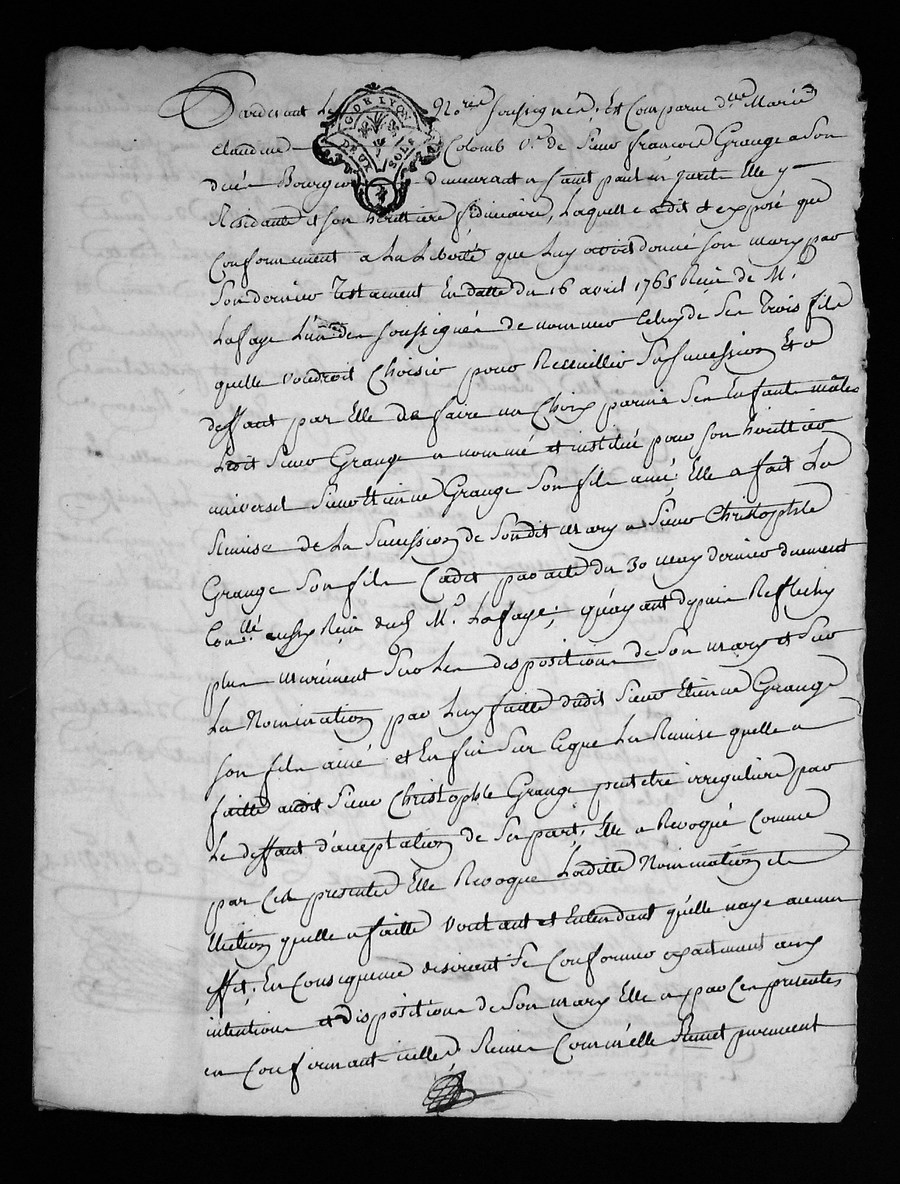 Pardevant Le No.re soussigné; Est Comparue d.lle Marie
claudine Colomb v.e de Sieur françois Grange a Son
G. DE LYON
DEUX SOLS
decés Bourgeois demeurant a Saint paul en Jarets Elle y
Residante et son herittiere fiduciaire, Laquelle a dit et exposé que
Conformement a La Liberté que Luy avoit donné son mary par
Son dernier Testament En datte du 16 avril 1765 Reçu de M.e
Lafaye L'un des soussignés de nommer Celuy de Ses Trois fils
quelle voudroit Choisir pour Recueillir Sa Succession Et a
deffaut par Elle de faire un Choix parmis Ses Enfants mâles
Ledit Sieur Grange a nommé et institué pour son herittier
universel Sieur Etienne Grange Son fils ainé; Elle a fait La
Remise de La Succession de Sondit mary a Sieur Christophle
Grange Son fils Cadet par acte du 30 may dernier duement
Con.llé aussy Reçu dud. M.e Lafaye; quayant depuis Refflechy
plus murement Sur Les dispositions de Son mary et Sur
La Nomination par Luy faitte dudit Sieur Etienne Grange
son fils ainé et Enfin Sur Ceque La Remise quelle a
faitte audit Sieur Christophle Grange peut etre irreguliere par
Le deffaut d'aceptation de Sa part, Elle a Revoqué Comme
par Ces presentes Elle Revoque Laditte Nomination et
Election quelle a faitte voulant et Entendant qu'elle naye aucun
effet; En Consequence desirant Se Conformer exactement aux
intentions et dispositions de Son mary Elle a par Ces presentes
en Conformant icelles Remis Comm'elle Remet purement